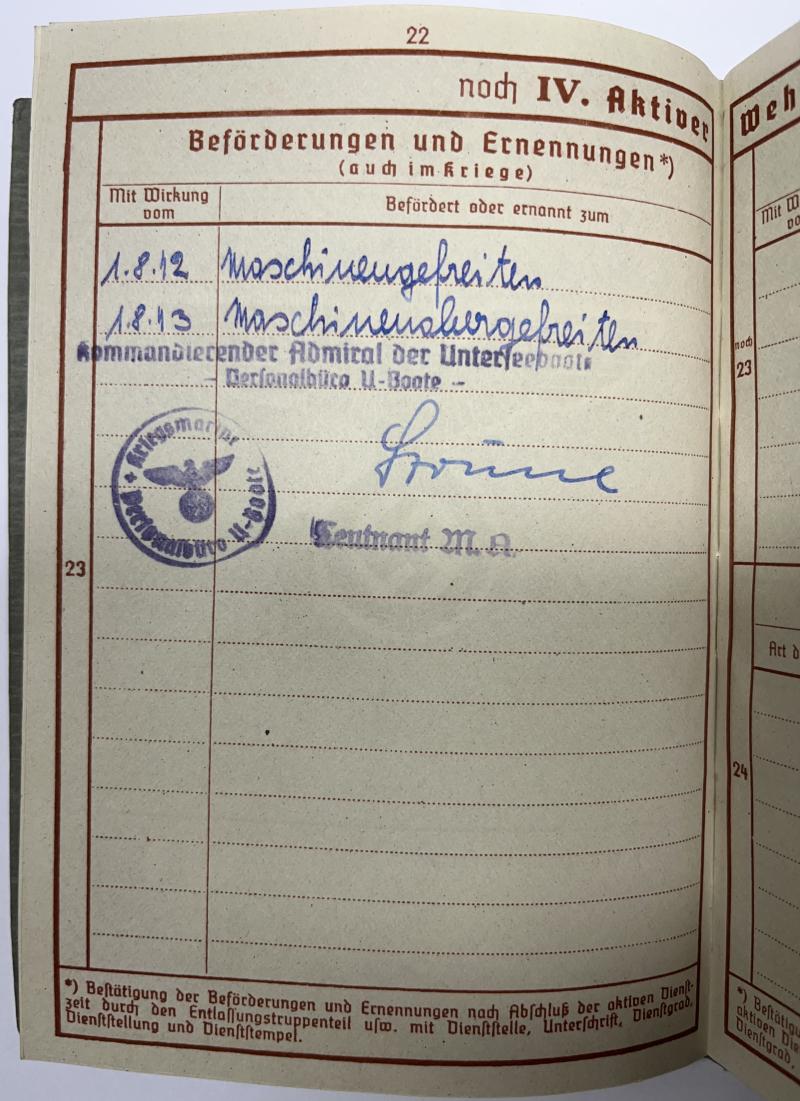 22
noch IV. Aktiver
Beförderungen und Ernennungen*)
(auch im Kriege)
Mit Wirkung
vom
Befördert oder ernannt zum
1.8.42 Maschinengefreiten
1.8.43 Maschinenobergefreiten
Kommandierender Admiral der Unterseeboote
– Personalbüro U-Boote –
Kriegsmarine
Personalbüro U-Boote
Leutnant M.A.
23
*) Bestätigung der Beförderungen und Ernennungen nach Abschluß der aktiven Dienst-
zeit durch den Entlassungstruppenteil usw. mit Dienststelle, Unterschrift, Dienstgrad,
Dienststellung und Dienststempel.
Weh
Mit
noch
23
Art
24
*)
aktiven
Dienstgrad,